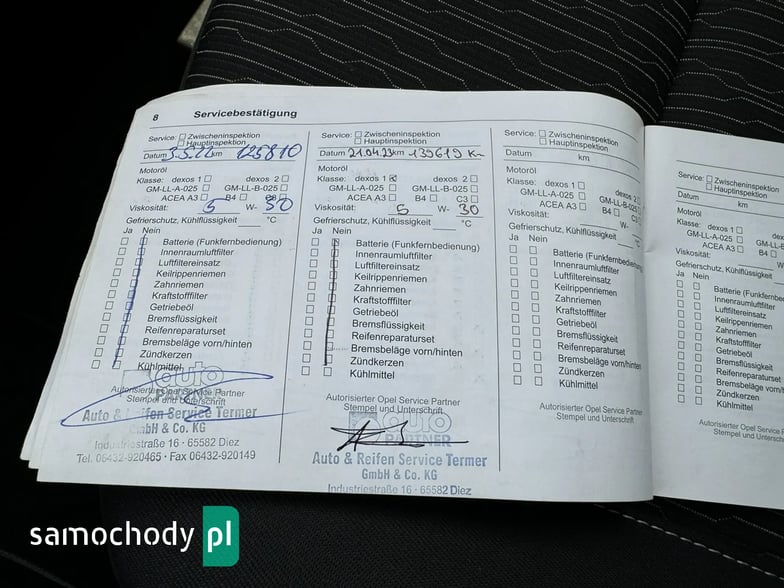 8 Servicebestätigung
Service: Zwischeninspektion
Hauptinspektion
Datum 3.5.22 km 125810
Motoröl
Klasse: dexos 1 dexos 2
GM-LL-A-025 GM-LL-B-025
ACEA A3 B4
Viskosität: 5 W- 30
Gefrierschutz, Kühlflüssigkeit °C
Ja Nein
Batterie (Funkfernbedienung)
Innenraumluftfilter
Luftfiltereinsatz
Keilrippenriemen
Zahnriemen
Kraftstofffilter
Getriebeöl
Bremsflüssigkeit
Reifenreparaturset
Bremsbeläge vorn/hinten
Zündkerzen
Kühlmittel
auto
Autorisierter Opel Service Partner
Stempel und Unterschrift
Auto & Reifen Service Termer
GmbH & Co. KG
Industriestraße 16 · 65582 Diez
Tel. 06432-920465 · Fax 06432-920149
Service: Zwischeninspektion
Hauptinspektion
Datum 21.04.23 km 139619 Km
Motoröl
Klasse: dexos 1 dexos 2
GM-LL-A-025 GM-LL-B-025
ACEA A3 B4 C3
Viskosität: 5 W- 30
Gefrierschutz, Kühlflüssigkeit °C
Ja Nein
Batterie (Funkfernbedienung)
Innenraumluftfilter
Luftfiltereinsatz
Keilrippenriemen
Zahnriemen
Kraftstofffilter
Getriebeöl
Bremsflüssigkeit
Reifenreparaturset
Bremsbeläge vorn/hinten
Zündkerzen
Kühlmittel
Autorisierter Opel Service Partner
Stempel und Unterschrift
auto
PARTNER
Auto & Reifen Service Termer
GmbH & Co. KG
Industriestraße 16 · 65582 Diez
Service: Zwischeninspektion
Hauptinspektion
Datum km
Motoröl
Klasse: dexos 1 dexos 2
GM-LL-A-025 GM-LL-B-025
ACEA A3 B4 C3
Viskosität: W-
Gefrierschutz, Kühlflüssigkeit °C
Ja Nein
Batterie (Funkfernbedienung)
Innenraumluftfilter
Luftfiltereinsatz
Keilrippenriemen
Zahnriemen
Kraftstofffilter
Getriebeöl
Bremsflüssigkeit
Reifenreparaturset
Bremsbeläge vorn/hinten
Zündkerzen
Kühlmittel
Autorisierter Opel Service Partner
Stempel und Unterschrift
Service: Zwischeninspektion
Hauptinspektion
Datum km
Motoröl
Klasse: dexos 1
GM-LL-A-025
ACEA A3
Viskosität:
Gefrierschutz, Kühlflüssigkeit
Ja Nein
Batterie (Funkfernb
Innenraumluftfilter
Luftfiltereinsatz
Keilrippenriemen
Zahnriemen
Kraftstofffilter
Getriebeöl
Bremsflüssigkeit
Reifenreparaturset
Bremsbeläge vorn
Zündkerzen
Kühlmittel
Autorisierter Opel Service Partner
Stempel und Unterschrift
samochody pl